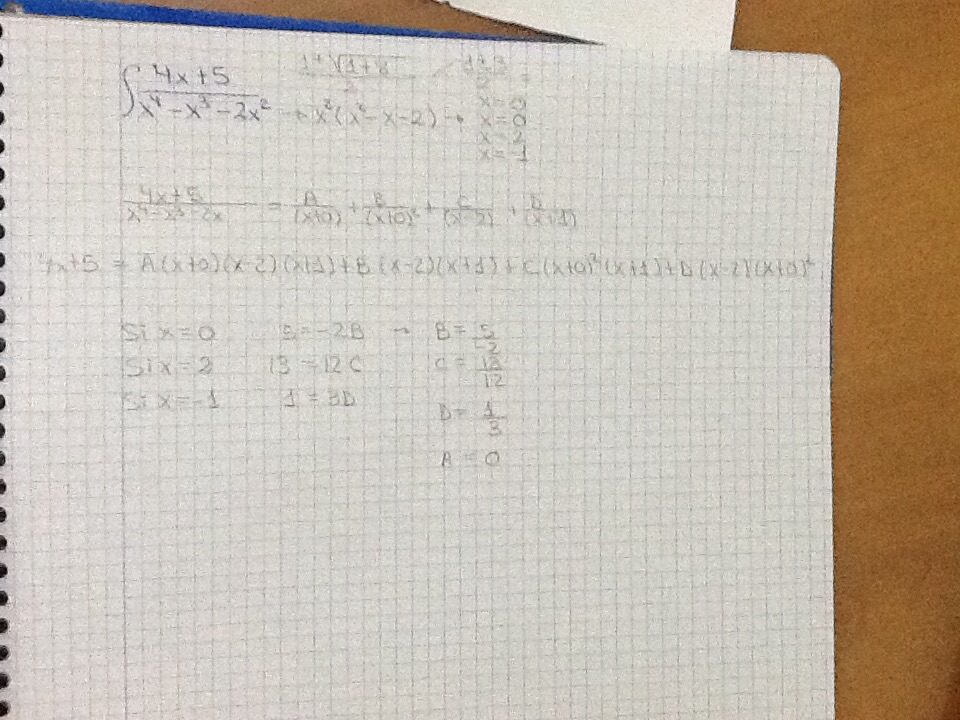 ∫ 4x+5 / x⁴-x³-2x² → x²(x²-x-2) → x=0
x=0
x=2
x=-1
4x+5 / x⁴-x³-2x = A/(x+0) + B/(x+0)² + C/(x-2) + D/(x+1)
4x+5 = A(x+0)(x-2)(x+1)+B(x-2)(x+1)+C(x+0)²(x+1)+D(x-2)(x+0)²
Si x=0 5=-2B → B= 5/-2
Si x=2 13=12C C= 13/12
Si x=-1 1=3D D= 1/3
A = 0